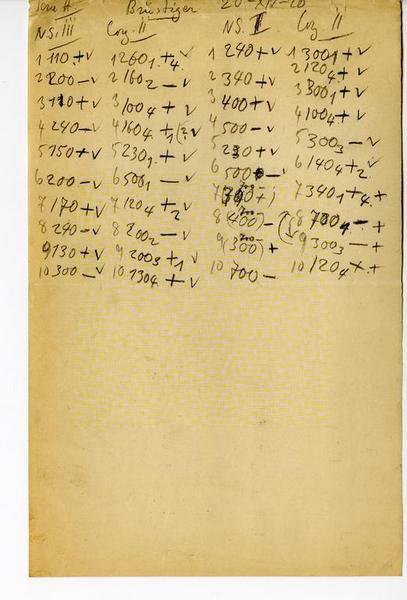 Brüstiger 20-XII-20
NS. III Coy. II NS. I Coy. II
1 110 + v 1 260₁ + ₄ v 1 240 + v 1 300₁ + v
2 200 – v 2 160₂ – v 2 340 + v 2 120₄ + v
3 110 + v 3 100₄ + v 3 400 + v 3 300₁ + v
4 240 – v 4 160₄ + v 4 500 – v 4 100₄ + v
5 150 + v 5 230₁ + v 5 230 + v 5 300₃ – v
6 200 – v 6 500₁ – v 6 500 – v 6 140₄ + ₂ v
7 170 + v 7 120₄ + ₂ v 7 7 340₁ + ₄ +
8 240 – v 8 200₂ – v 8 (400) – 8 700₄ – +
9 130 + v 9 200₃ + ₁ v 9 (300) + 9 300₃ – +
10 300 – v 10 130₄ + v 10 700 – 10 120₄ + +